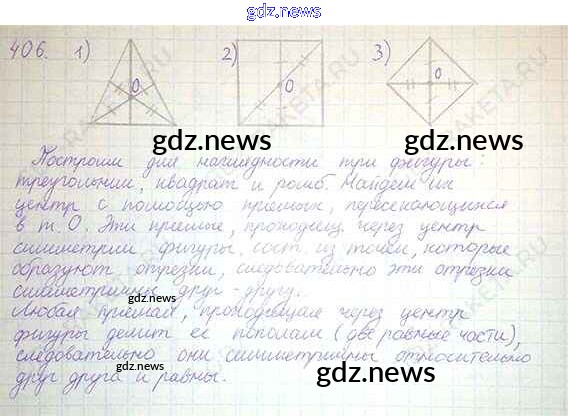 gdz.news
406. 1) 2) 3)
O O O
gdz.news
gdz.news
Построим для наглядности три фигуры:
треугольник, квадрат и ромб. Найдем их
центр с помощью прямых, пересекающихся
в т. О. Эти прямые, проходящ. через центр
симметрии фигуры, сост. из точек, которые
образуют отрезки, следовательно эти отрезки
симметричны друг-другу.
gdz.news
Любая прямая, проходящая через центр
фигуры делит ее пополам (две равные части),
следовательно они симметричны относительно
друг друга и равны.
gdz.news
gdz.news